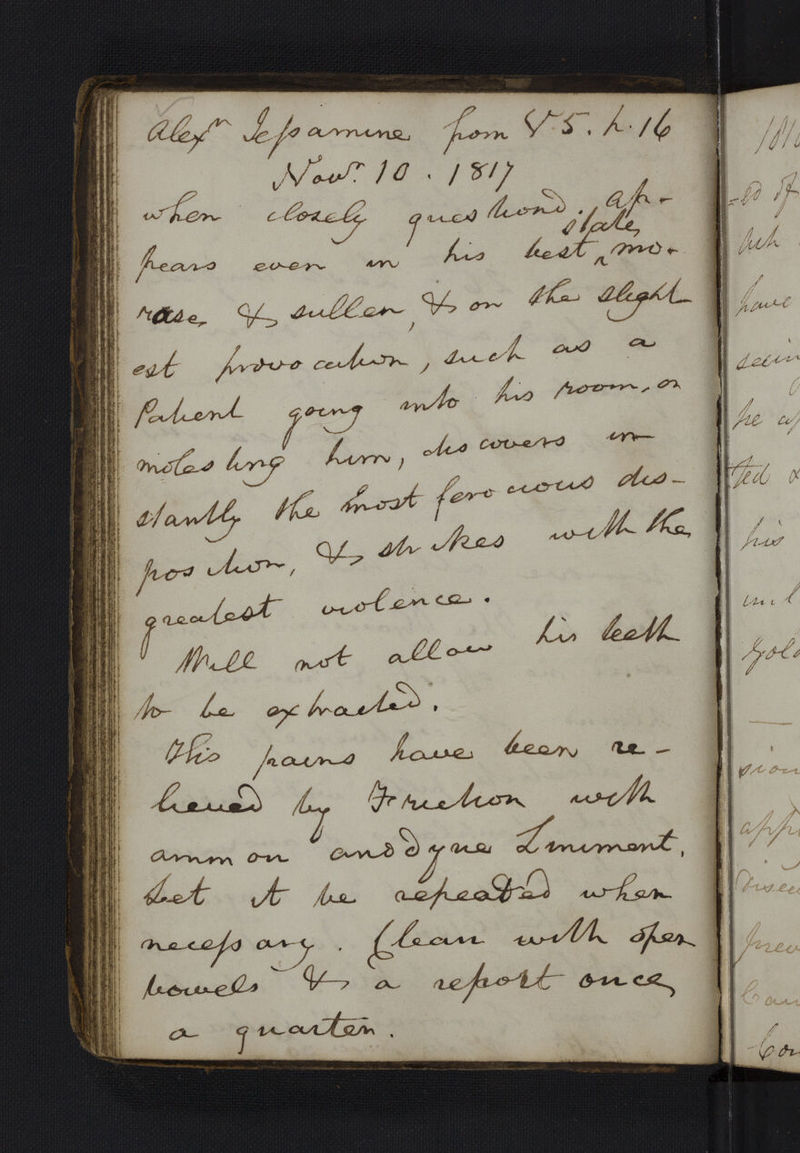 Alexr Jessamine from V. 5. h. 16
Novr. 10. 1817
when closely questiond. ap-
state
pears even in his best ^ mo-
rose & sullen, & on the slight
est provocation, such as a
Patient going into his room, or
molesting him, discovers in
stantly the most ferocious dis-
position, & strikes with the
greatest violence.
Will not allow his teeth
to be extracted.
His pains have been re-
lieved by Friction with
ammon anodyne Liniment.
Let it be repeated when
necessary. Clean with open
bowels & a report once
a quarter.
=ed of
have
he
ted &
his